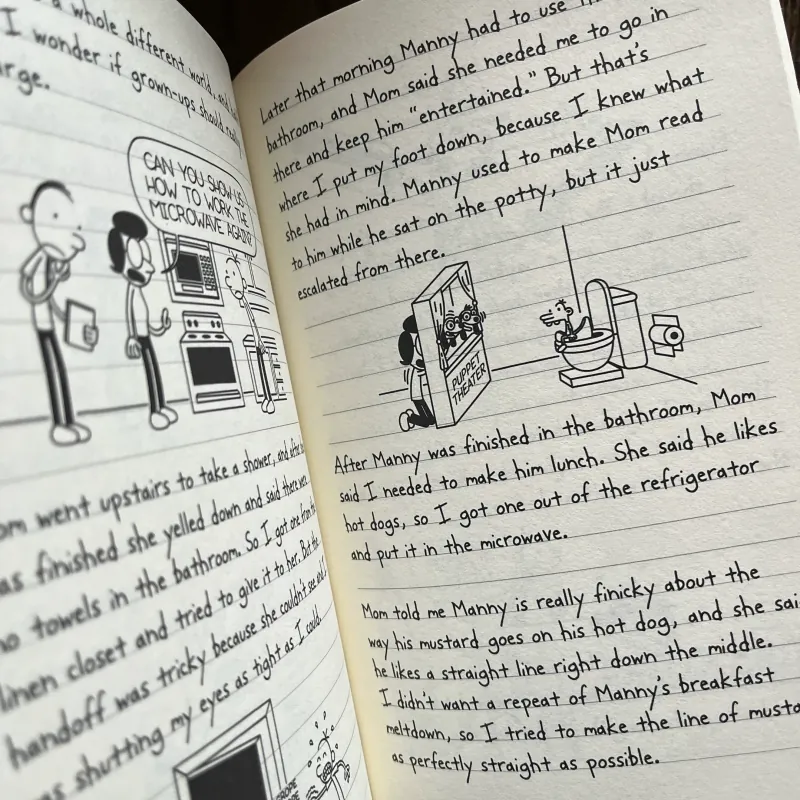 a whole different world, and
I wonder if grown-ups should really
arge.
CAN YOU SHOW US
HOW TO WORK THE
MICROWAVE AGAIN?
om went upstairs to take a shower, and after
as finished she yelled down and said there were
no towels in the bathroom. So I got one from the
linen closet and tried to give it to her. But the
handoff was tricky because she couldn't see
as shutting my eyes as tight as I could.
GROPE
Later that morning Manny had to use
bathroom, and Mom said she needed me to go in
there and keep him "entertained." But that's
where I put my foot down, because I knew what
she had in mind. Manny used to make Mom read
to him while he sat on the potty, but it just
escalated from there.
PUPPET
THEATER
After Manny was finished in the bathroom, Mom
said I needed to make him lunch. She said he likes
hot dogs, so I got one out of the refrigerator
and put it in the microwave.
Mom told me Manny is really finicky about the
way his mustard goes on his hot dog, and she sai
he likes a straight line right down the middle.
I didn't want a repeat of Manny's breakfast
meltdown, so I tried to make the line of musta
as perfectly straight as possible.